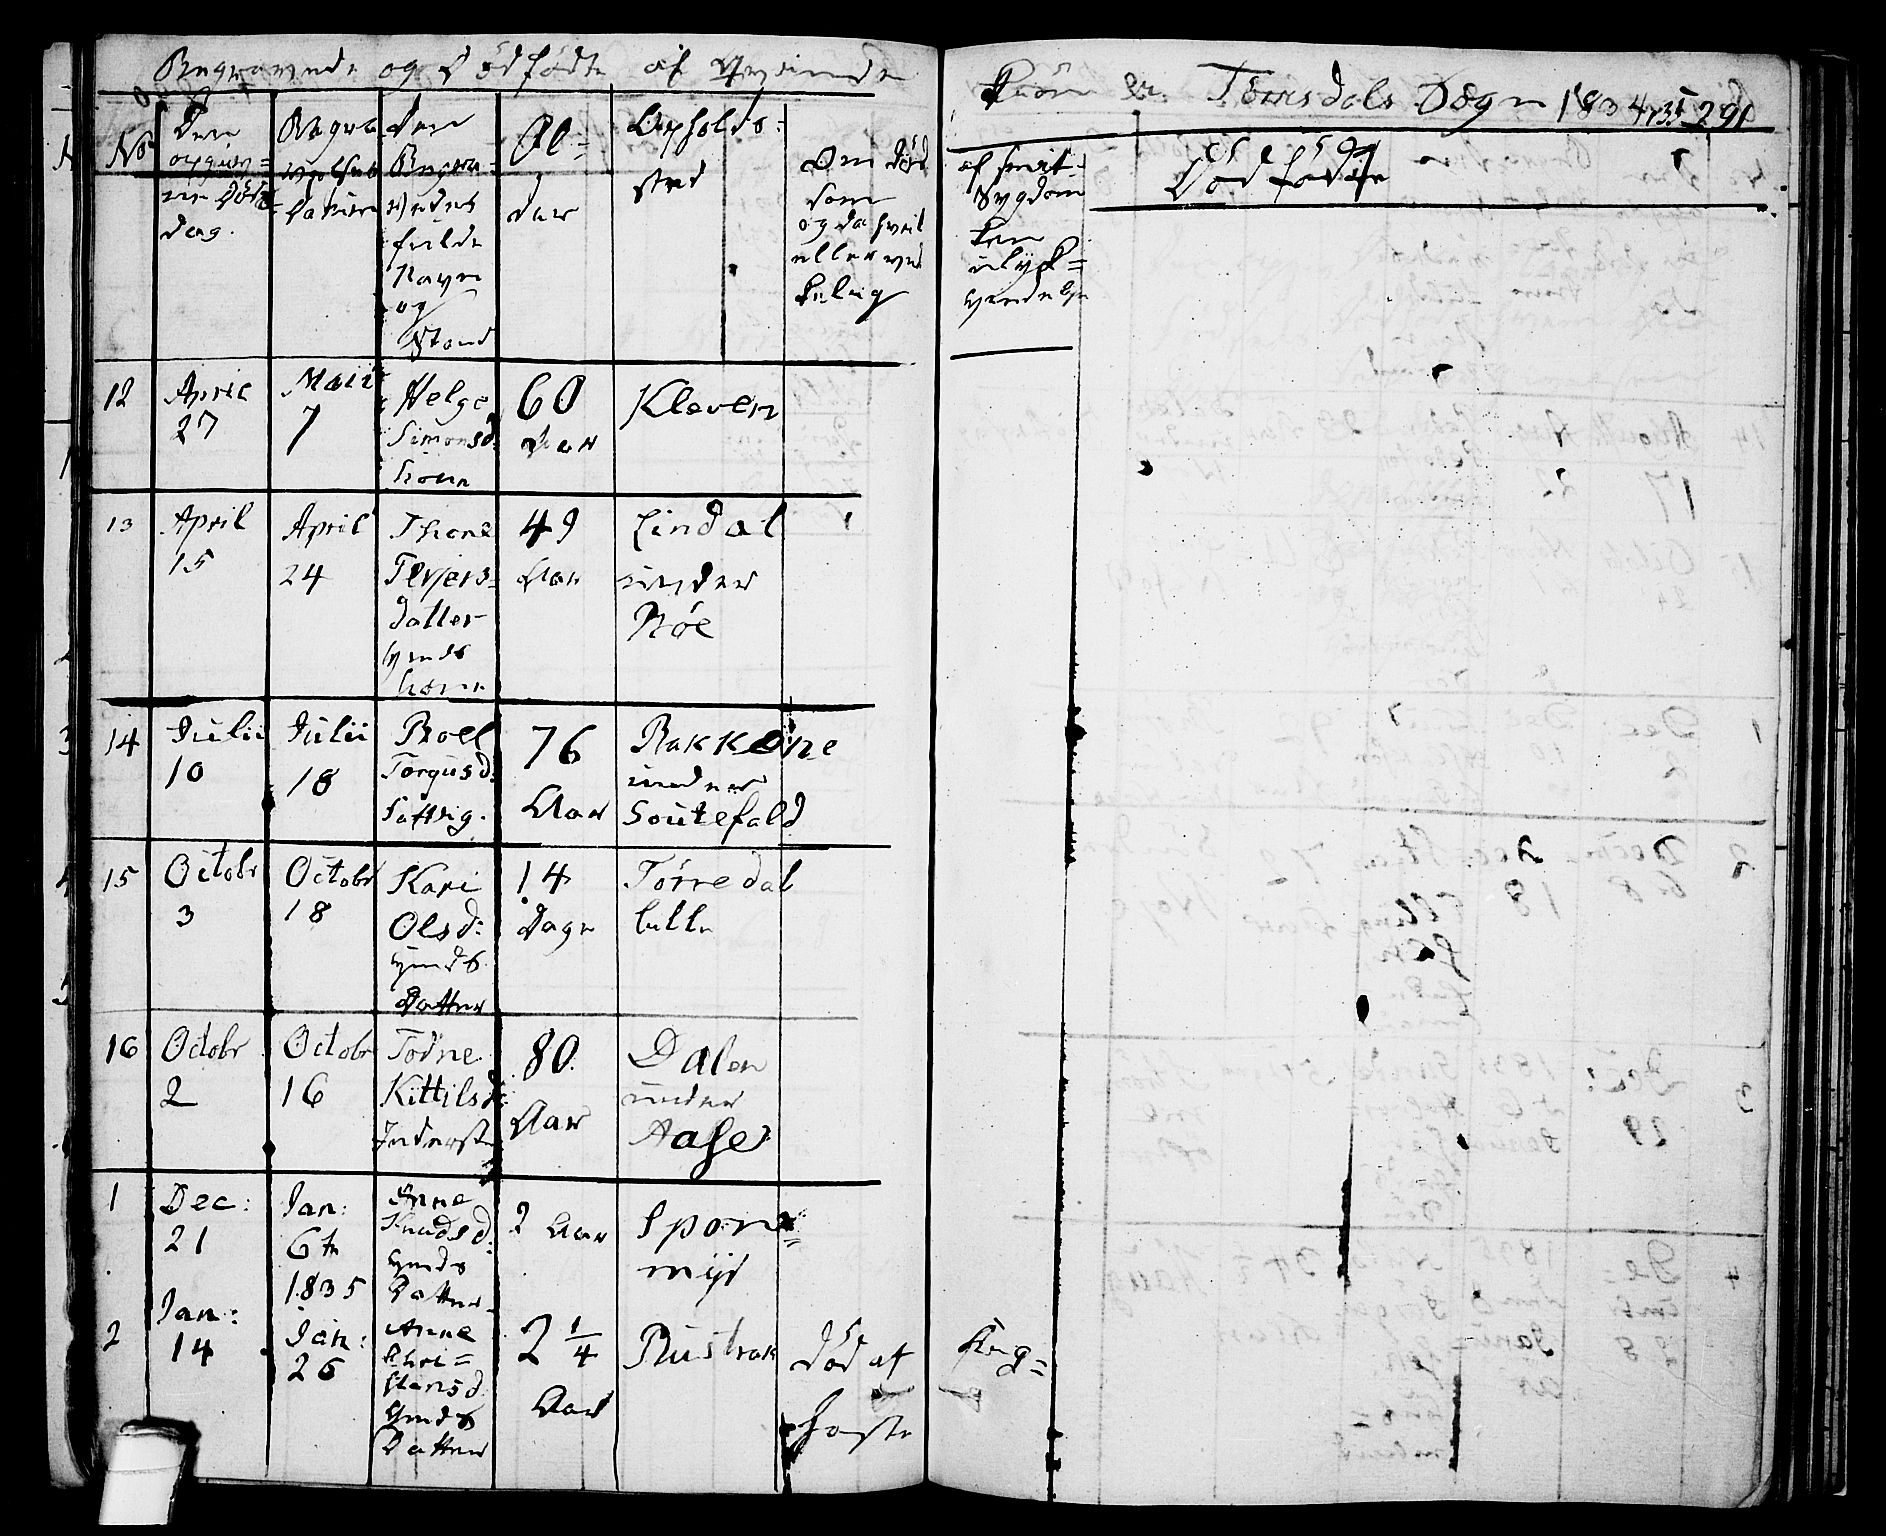 Begravede og Dödfödte af Qvinde
Kiön i Törrisdals Sogn 1834, 35 291
No
Den
opgivne
Döds
dag.
Begra
velses
Datum
Den
Begra
vedes
fulde
Navn
og
Stand
Al=
der
Opholds:
sted
Om död
som
og da hvil
eller ved
af hvit
Sygdom
ulyk=
Död födte
12
April
27
Maii
7
Helge
Simonsd:
kone
60
Aar
Kleven
13
April
15
April
24
Thone
Terjers=
datter
Gmds
kone
49
Aar
Lindal
under
Röe
14
Julii
10
Julii
18
Roel
Torgusd:
76
Aar
Bakkene
under
Soutefald
15
Octobr
3
Octobr
18
Kari
Olsd:
Gmds
Datter
14
Dage
Törredal
lille
16
Octobr
2
Octobr
16
Tone
Kittilsd:
Inderste
80
Aar
Dalen
under
Aase
1
Dec:
21
Jan:
6te
1835
Anne
Knudsd:
Gmds
Datter
2 Aar
Spone=
myr
2
Jan:
14
Jan:
26
Anne
Chri=
stensd
Gmds
Datter
2 1/4
Aar
Rustrak
död af
King=
hoste